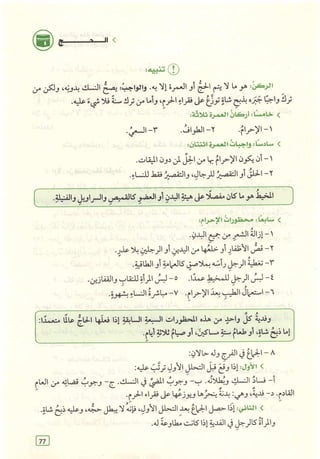 الحـــج
تنبيه:
الركنُ: هو ما لا يتم الحجُّ أو العمرة إلا به. والواجبُ: يصحُّ النسكُ بدونِه، ولكن من
تركَ واجبًا جَبَره بذبحِ شاةٍ توزَّعُ على فقراءِ الحرمِ، وأما من ترك سنةً فلا شيءَ عليه.
خامسًا: أركانُ العمرةِ ثلاثةٌ:
١- الإحرامُ. ٢- الطوافُ. ٣- السعيُ.
سادسًا: واجباتُ العمرةِ اثنتان:
١- أن يكون الإحرامُ بها من الحِلِّ لمن دون الميقات.
٢- الحلقُ أو التقصيرُ للرجالِ، والتقصيرُ فقط للنساءِ.
المَخيطُ هو ما كان مفصلًا على هيئةِ البدنِ أو العضوِ كالقميصِ والسراويلِ والفنيلةِ.
سابعًا: محظوراتُ الإحرامِ:
١- إزالةُ الشعرِ من جميعِ البدنِ.
٢- قصُّ الأظفارِ أو خلعُها من اليدينِ أو الرجلينِ بلا عذرٍ.
٣- تغطيةُ الرجلِ رأسَه بملاصقٍ كالعمامةِ أو الطاقيةِ.
٤- لبسُ الرجلِ للمخيطِ عمدًا. ٥- لبسُ المرأةِ للنقابِ والقفازين.
٦- استعمالُ الطيبِ بعدَ الإحرامِ. ٧- مباشرةُ النساءِ بشهوةٍ.
وفديةُ كلِّ واحدٍ من هذه المحظوراتِ السبعةِ السابقةِ إذا فعلَها الحاجُّ عالمًا متعمدًا:
إما ذبحُ شاةٍ، أو طعامُ ستةِ مساكينَ، أو صيامُ ثلاثةِ أيامٍ.
٨- الجماعُ في الفرجِ وله حالان:
الأول: إذا وقعَ قبلَ التحللِ الأولِ ترتَّبَ عليه:
أ- فسادُ النسكِ وبطلانُه. ب- وجوبُ المضيِّ في النسكِ. ج- وجوبُ قضائِه من العامِ
القادمِ. د- فديةٌ، وهي: بدنةٌ ينحرُها ويوزعُها على فقراءِ الحرمِ.
الثاني: إذا حصلَ الجماعُ بعدَ التحللِ الأولِ، فإنَّه لا يبطل حجُّه، وعليه ذبحُ شاةٍ.
والمرأةُ كالرجلِ في الفديةِ إذا كانت مطاوعةً له.
77